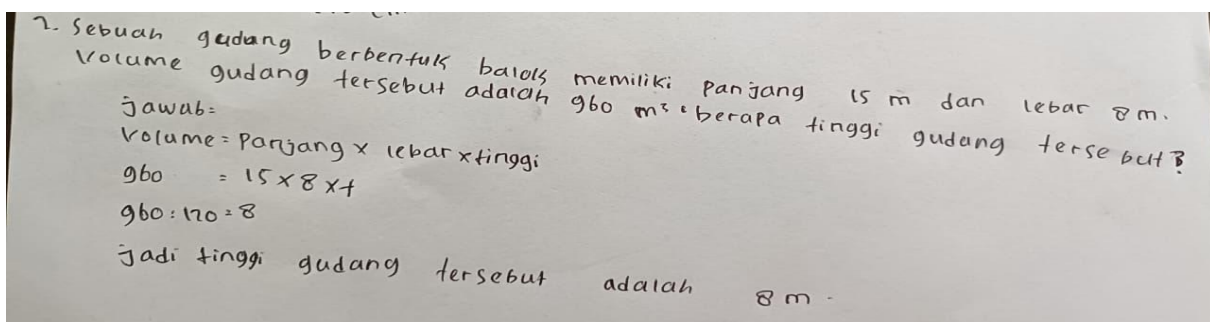 2. Sebuah gudang berbentuk balok memiliki panjang 15 m dan lebar 8 m.
Volume gudang tersebut adalah 960 m³. berapa tinggi gudang tersebut?
jawab=
Volume = Panjang x lebar x tinggi
960 = 15 x 8 x t
960 : 120 = 8
jadi tinggi gudang tersebut adalah 8 m.